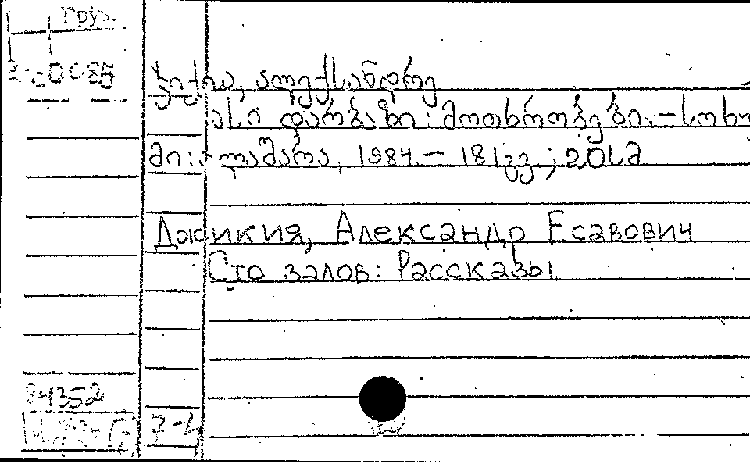 Груз.
ჯიქია, ალექსანდრე
ასი დარბაზი: მოთხრობები. – სოხუ
მი: ალაშარა, 1984. – 181გვ.; 20სმ
Джикия, Александр Есавович
Сто залов: Рассказы.
84352